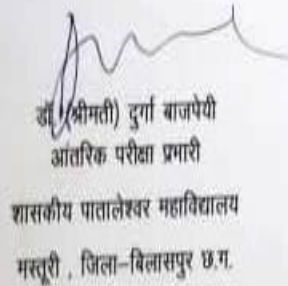 डॉ (श्रीमती) दुर्गा बाजपेयी
आंतरिक परीक्षा प्रभारी
शासकीय पातालेश्वर महाविद्यालय
मस्तूरी , जिला-बिलासपुर छ.ग.